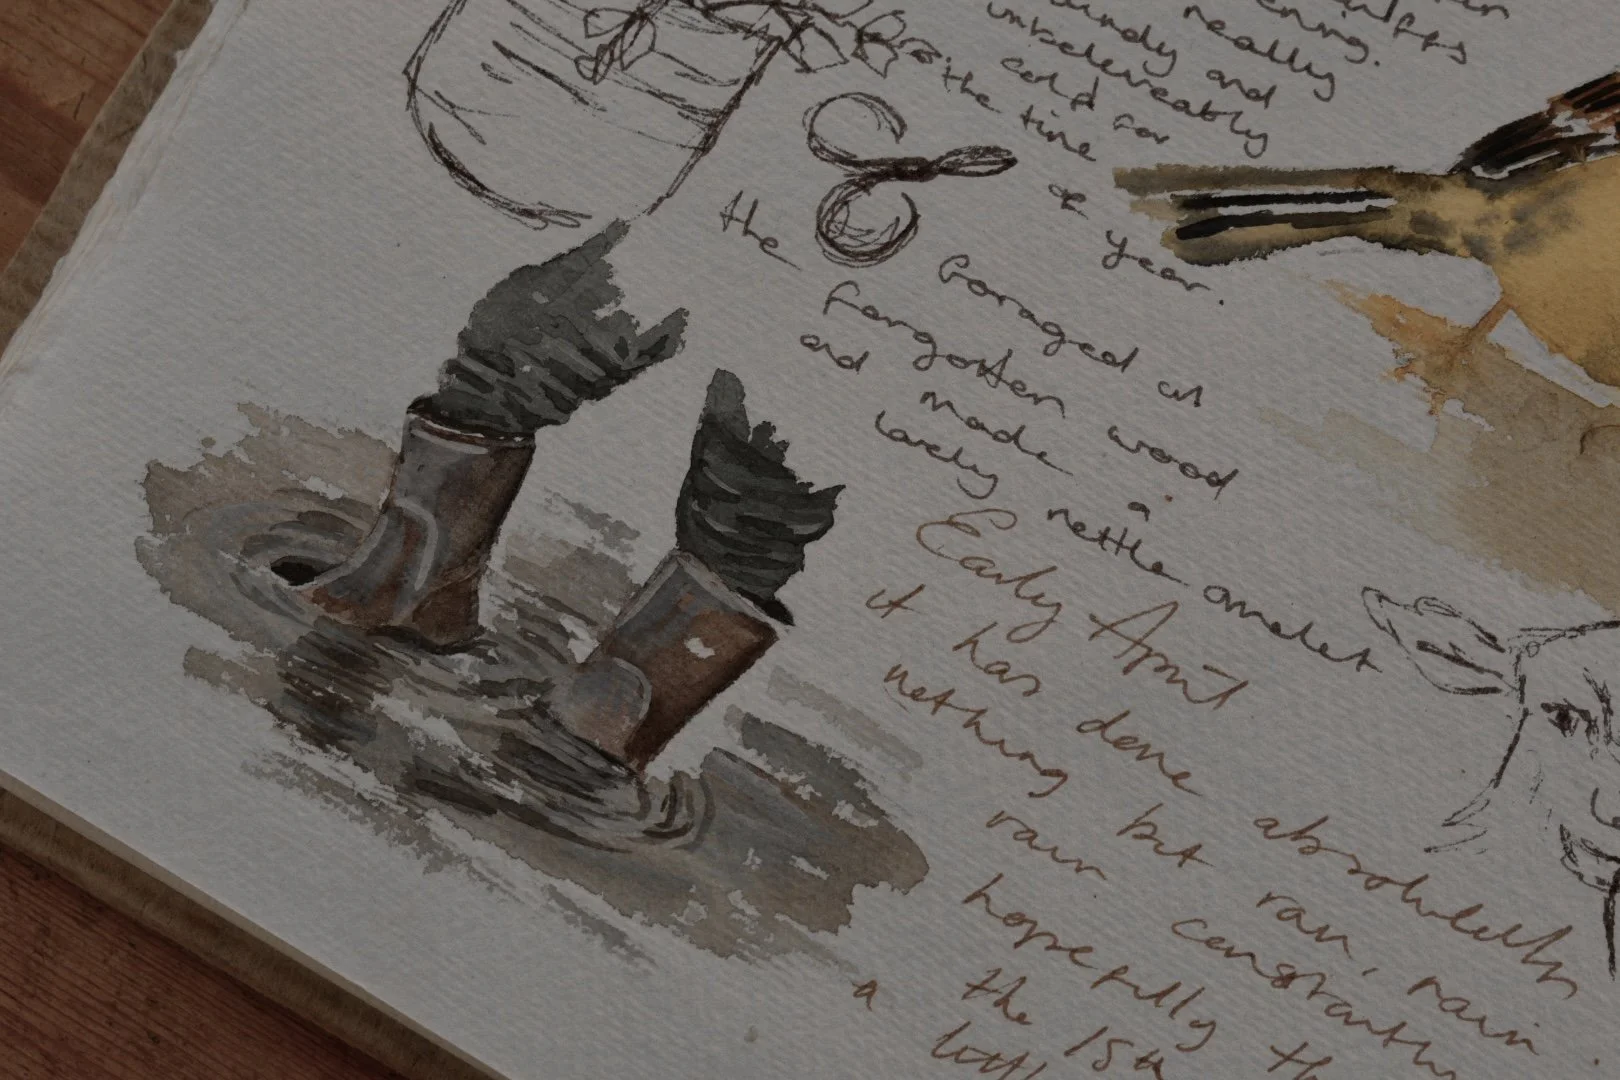 really
windy and
unbeleiveably
cold for
the time
of
year.
the
Foraged at
forgotten wood
and made a
lovely nettle omelet
Early April
it has done absolutely
nothing but rain, rain
rain constantly
hopefully
a the 15th